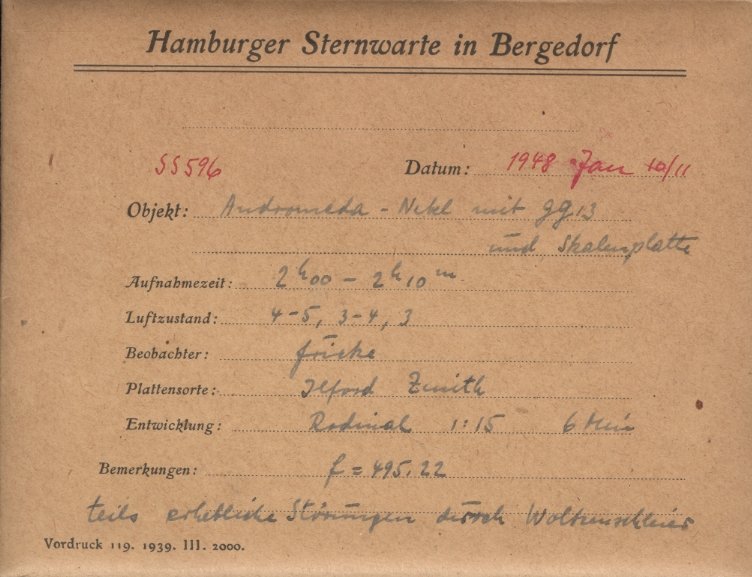 Hamburger Sternwarte in Bergedorf
SS596 Datum: 1948 Jan 10/11
Objekt: Andromeda - Nebl mit GG13
und Skalenplatte
Aufnahmezeit: 2h00 - 2h10m
Luftzustand: 4-5, 3-4, 3
Beobachter: Fricke
Plattensorte: Ilford Zenith
Entwicklung: Rodinal 1:15 6 Min
Bemerkungen: f = 495.22
teils erhebliche Störungen durch Wolkenschleier
Vordruck 119. 1939. III. 2000.